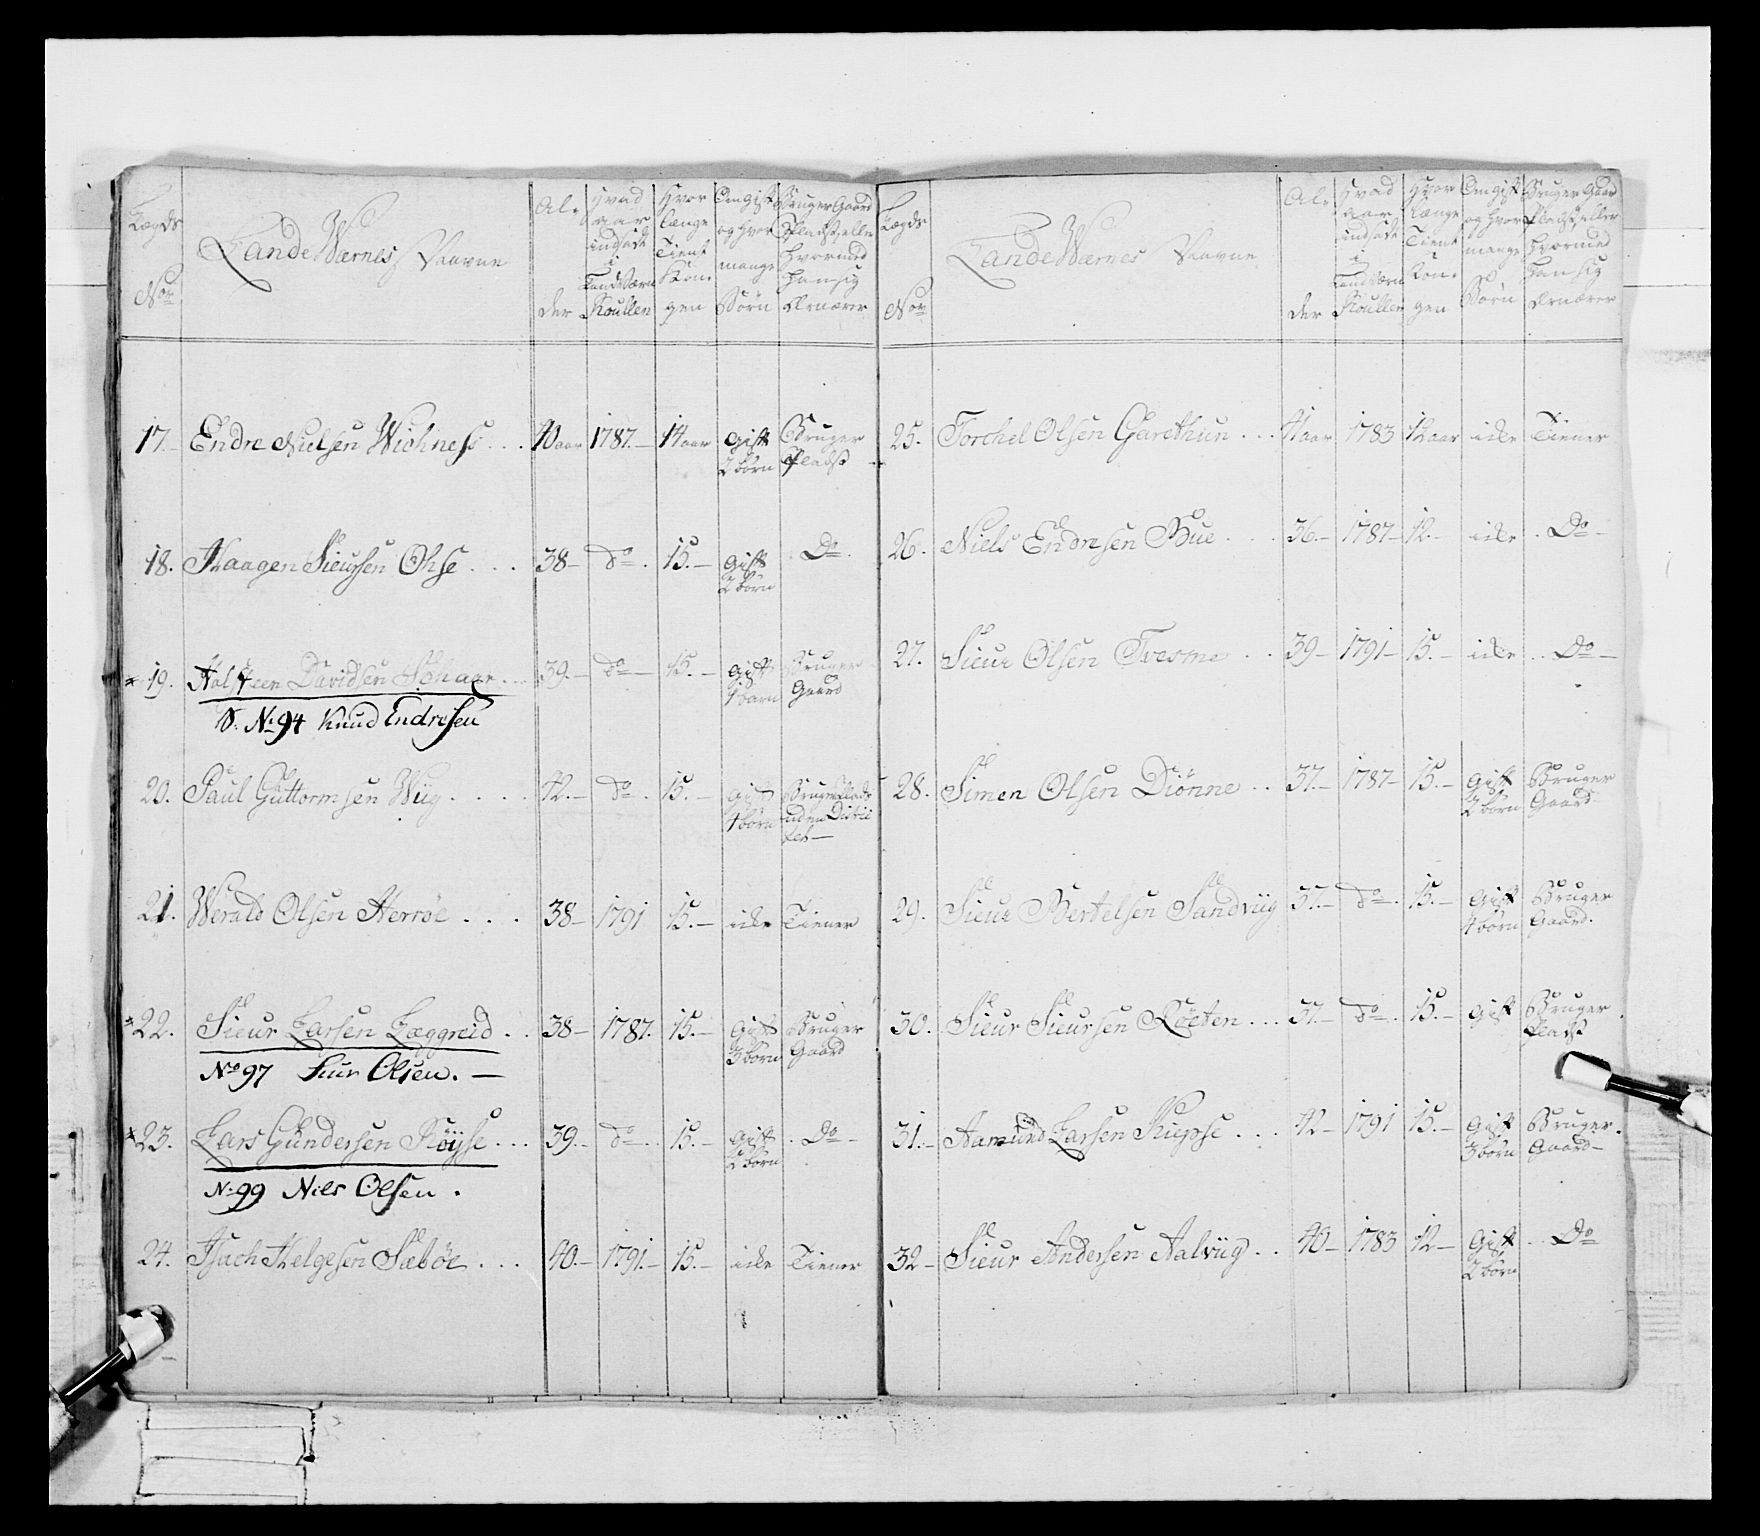 Lægds No.
Lande Wærnes Navne
Alder
Hvad aar indsadt i LandeVærn Roullen
Hvor længe Tient Kongen
Om gift og hvor mange Börn
Bruger Gaard Plads, eller hvormed han sig Ernærer
17. Endre Nielsen Wichness . . . 40 aar 1787.- 14 aar Gift 2 börn Bruger Plads
18. Haagen Sieursen Ohse . . . 38 - do. 15. - Gift 2 börn Do.
19. Halsteen Davidsen . . . 39. - do - 15. - Gift Bruger Gaard
No. 94 Knud Endresen
20. Paul Guttormsen Wiig . . . . 42. - do. 15. - Gift 4 börn Bruger Plads uden
21. Werald Olsen Herröe . . . 38 - 1791 15. - ikke Tiener
22. Sieur Larsen Læggreid . . 38 - 1787. 15. - Gift 3 börn Bruger Gaard
No 97 Siur Olsen. -
23. Lars Gundersen Röyse . . . 39. - do. . 15. - Gift 2 börn Do -
No. 99 Nils Olsen.
24. Isach Helgesen Sæböe . . . 40. - 1791. - 15. - ikke Tiener
Lægds No.
Lande Wærnes Navne
Alder
Hvad aar indsadt i LandeVærn Roullen
Hvor længe Tient Kongen
Om gift og hvor mange Börn
Bruger Gaard Plads, eller hvormed han sig Ernærer
25. Torchel Olsen Garethun . . . 41 aar 1783 12 aar ikke Tiener
26. Niels Endresen Bue . . . 36. - 1787 - 12. - ikke . Do -
27. Sieur Olsen Tvesme . . 39 - 1791 - 15. - ikke . . Do -
28. Simen Olsen Diönne . . 37. - 1787 - 15. - Gift 2 börn Bruger Gaard
29. Sieur Bertelsen Sandviig 37. - do. 15. - Gift 4 börn Bruger Gaard.
30. Sieur Sieursen Röeten . . . 37. - do. 15. - Gift Bruger Plads
31. - Aamund Larsen Kiepse . . . 42 - 1791 15. - Gift 3 börn Bruger Gaard -
32 - Sieur Andersen Aalviig . . 40 - 1783 12 - Gift 2 börn . . Do